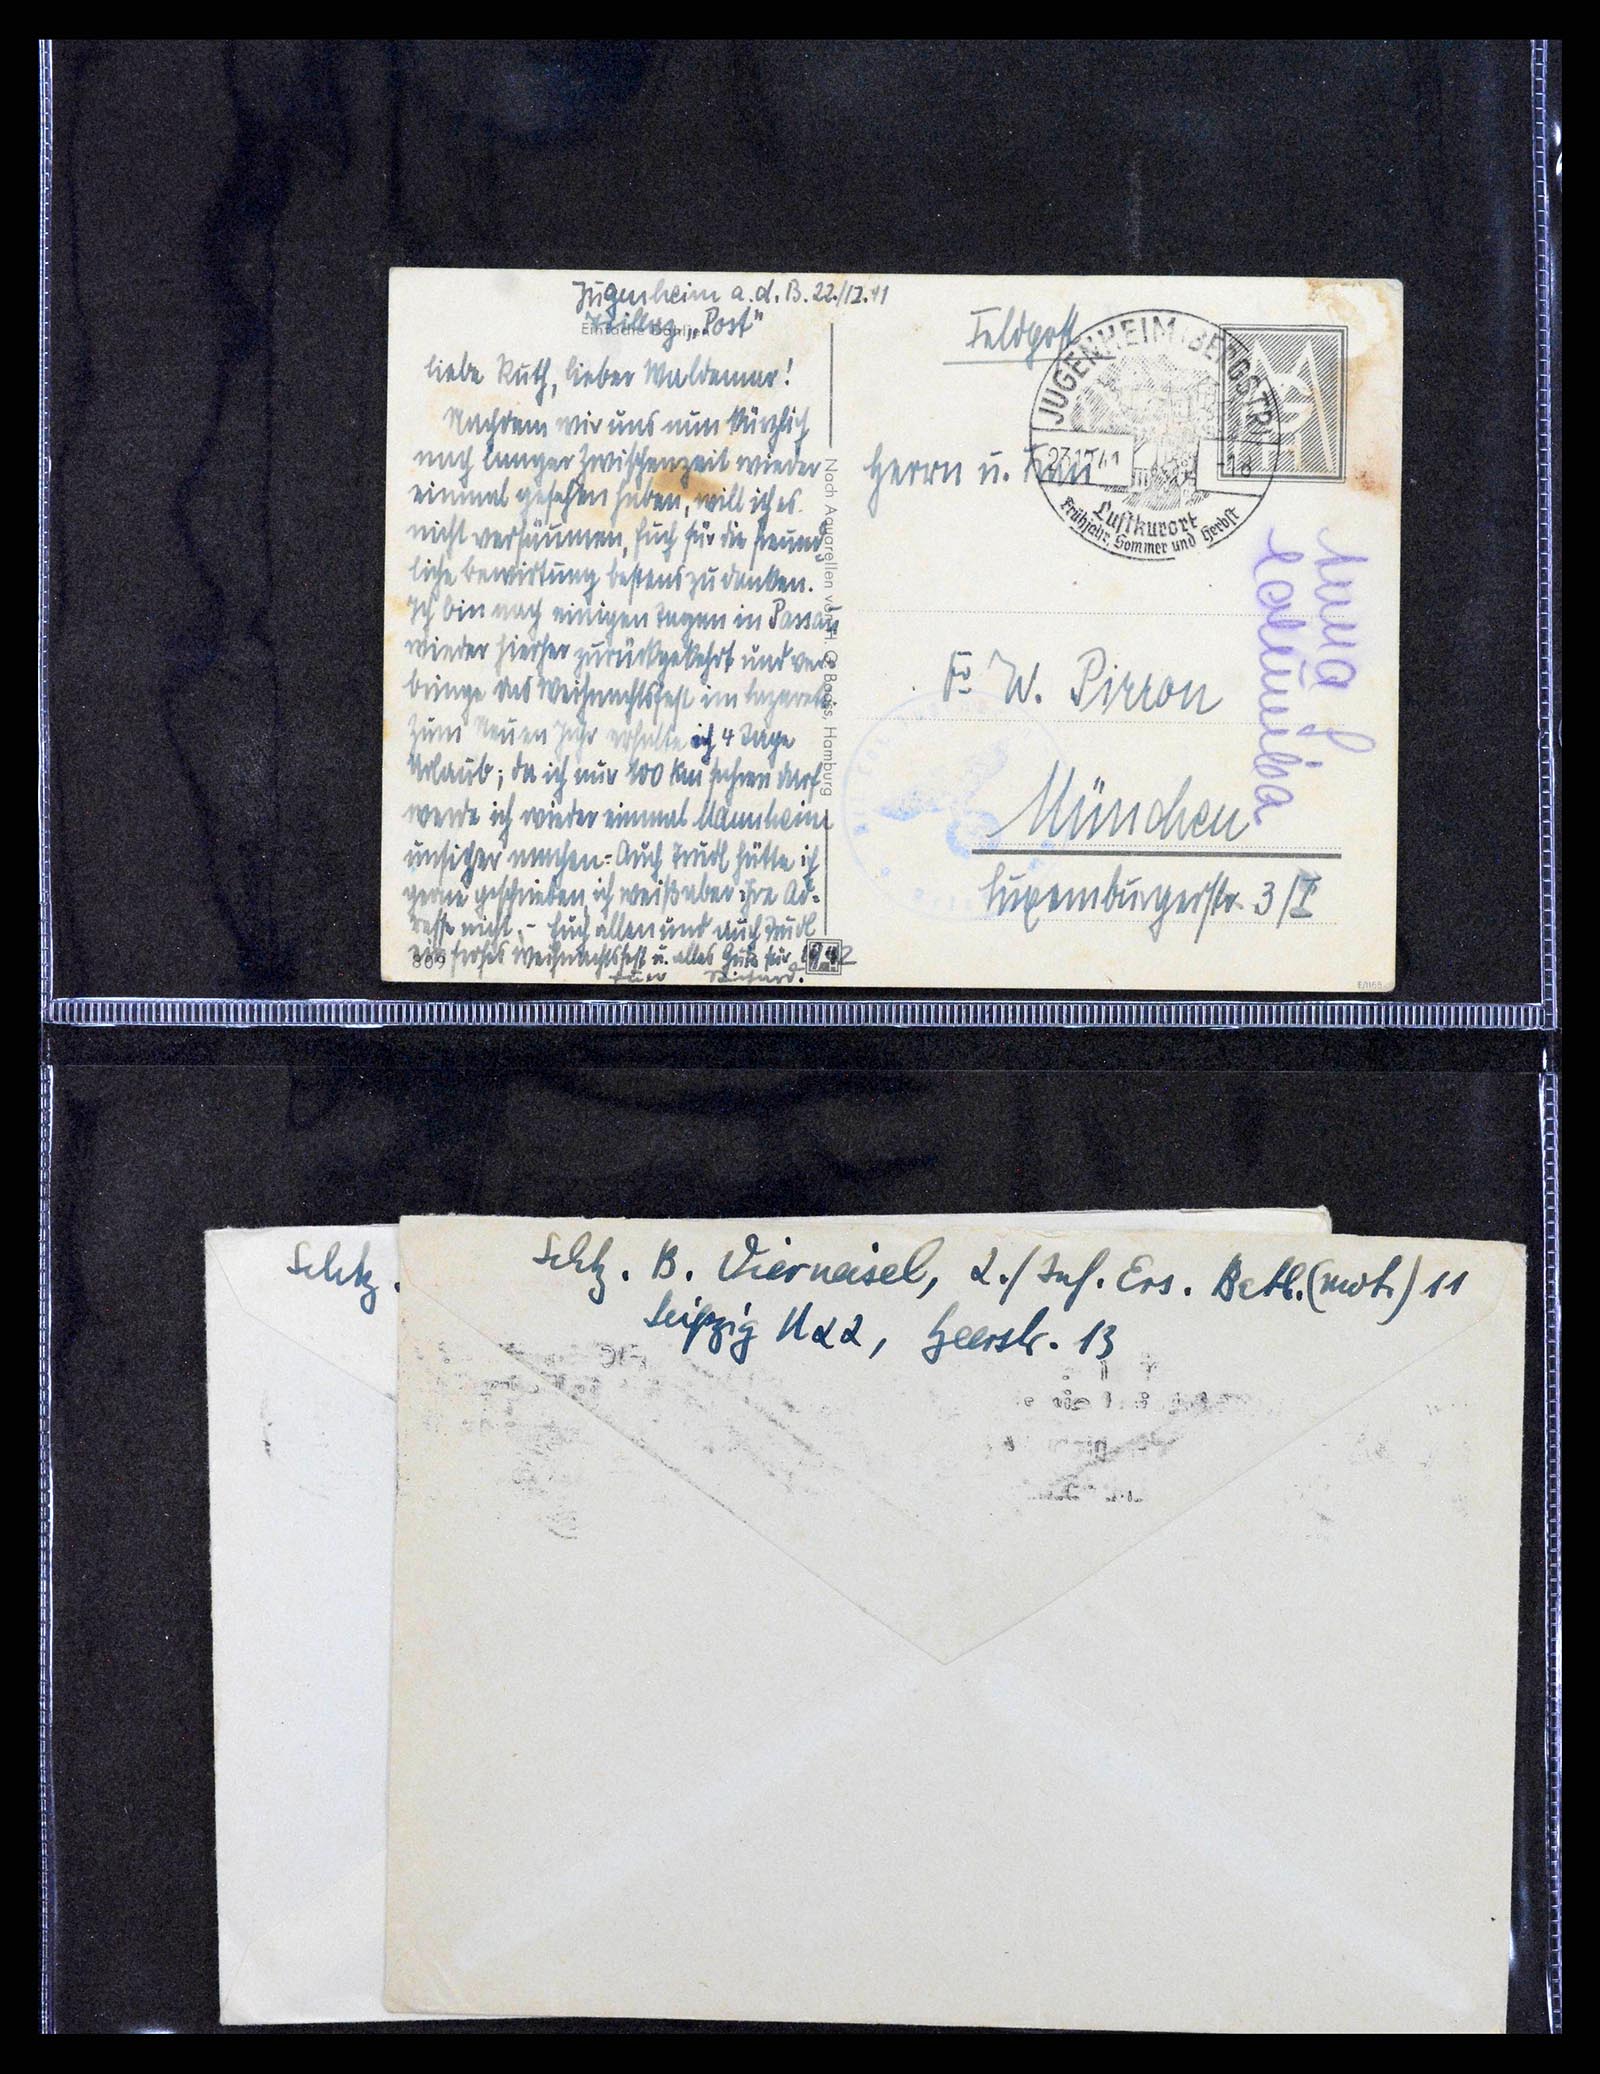 Jugenheim a.d.B. 22./12.41
"Post"
Einfache Dahlien
Liebe Ruth, lieber Waldemar!
Nachdem wir uns nun kürzlich
nach langer Zwischenzeit wieder
einmal gesehen haben, will ich es
nicht versäumen, Euch für die freund-
liche Bewirtung bestens zu danken.
Ich bin nach einigen Tagen in Passau
wieder hierher zurückgekehrt und ver-
bringe das Weihnachtsfest im Lazarett.
Zum Neuen Jahr erhalte ich 4 Tage
Urlaub; da ich nur 100 km fahren darf
werde ich wieder einmal Mannheim
unsicher machen.- Auch Trudl hätte ich
gerne geschrieben, ich weiß aber ihre Ad-
resse nicht.- Euch allen und auch Trudl
ein frohes Weihnachtsfest u. alles Gute für 1942
Euer Richard.
809
Nach Aquarellen von H. O. Baoss, Hamburg
Feldpost
JUGENHEIM (BERGSTR)
23.12.41 -18
Luftkurort
Frühjahr, Sommer und Herbst
Herrn u. Frau
W. Pirron
München
Luxemburgerstr. 3/I
E/1165
Schtz.
Schtz. B. Vierneisel, 2./Inf. Ers. Batl. (mot.) 11
Leipzig N22, Heerstr. 13